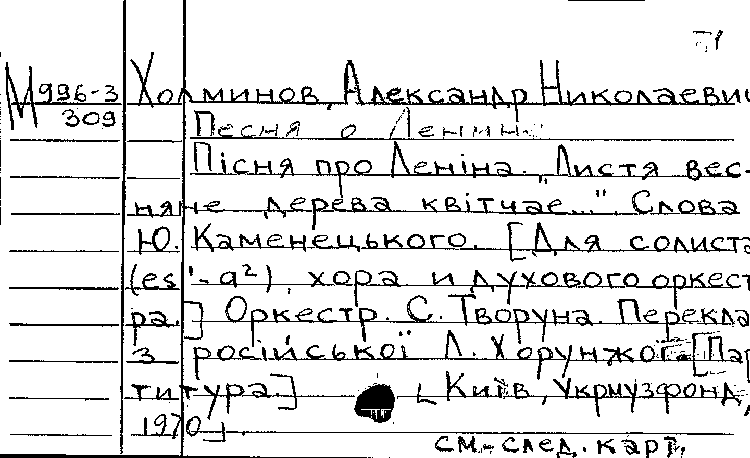 М 996-3 Холминов, Александр Николаевич
309
Песня о Ленине
Пісня про Леніна. „Листя вес-
няне дерева квітчає...". Слова
Ю. Каменецького. [Для солиста
(es¹-a²), хора и духового оркест
ра.] Оркестр. С. Творуна. Перекла
з російської Л. Хорунжої. [Пар
титура.] [Київ, Укрмузфонд,
1970].
см. след. карт.